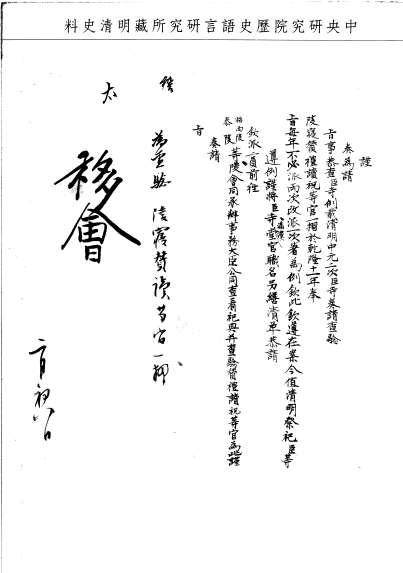 中央研究院歷史語言研究所藏明清史料
謹
奏為請
旨事恭查臣寺例載清明中元二次臣寺奏請查驗
陵寢贊禮讀祝等官一摺於乾隆十一年奉
旨每年不必派兩次改派一次著為例欽此欽遵在案今值清明祭祀臣等
遵例謹將臣寺滿漢堂官職名另繕清單恭請
欽派一員前往
泰陵等陵會同承辦事務大臣公同查看祀典并查驗贊禮讀祝等官為此謹
奏請
旨
太
移會
為查驗陵寢贊讀等官一摺
二月初八日